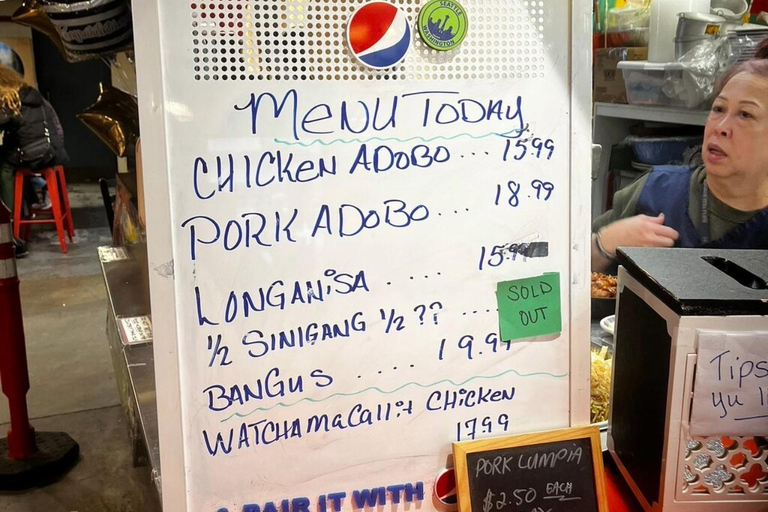 SEATTLE
WASHINGTON
MENU TODAY
CHICKEN ADOBO ... 15.99
PORK ADOBO ... 18.99
LONGANISA .... 15.99
½ SINIGANG ½ ?? ....
SOLD
OUT
BANGUS .... 19.99
WATCHAMACALLit CHICKEN
1799
PAIR IT WITH
PORK LUMPIA
$2.50 EACH
Tips
yu